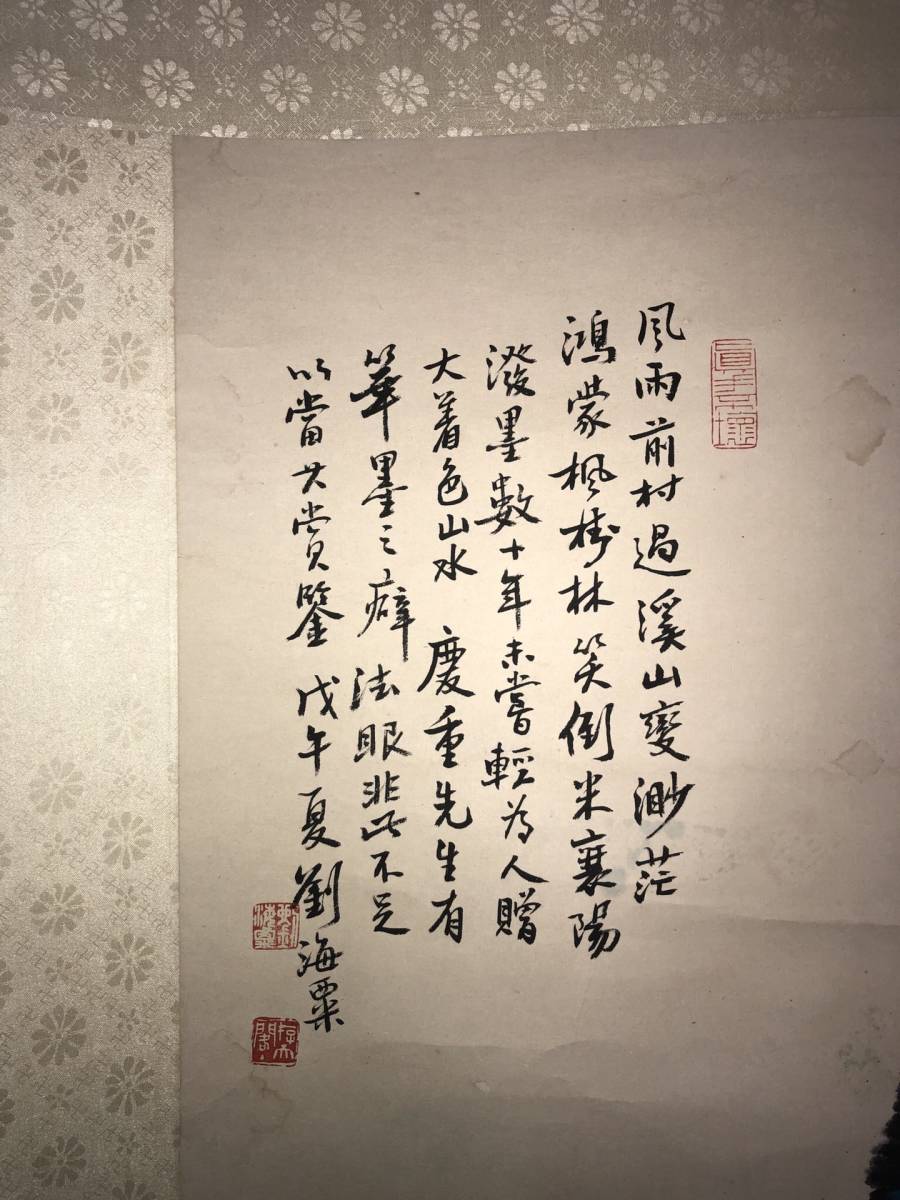 真手不壞
風雨前村過溪山變渺茫
鴻蒙楓樹林笑倒米襄陽
潑墨數十年未嘗輕為人贈
大着色山水 慶重先生有
筆墨之癖法眼非此不足
以當其賞鑒 戊午夏劉海粟
劉海粟
存天閣